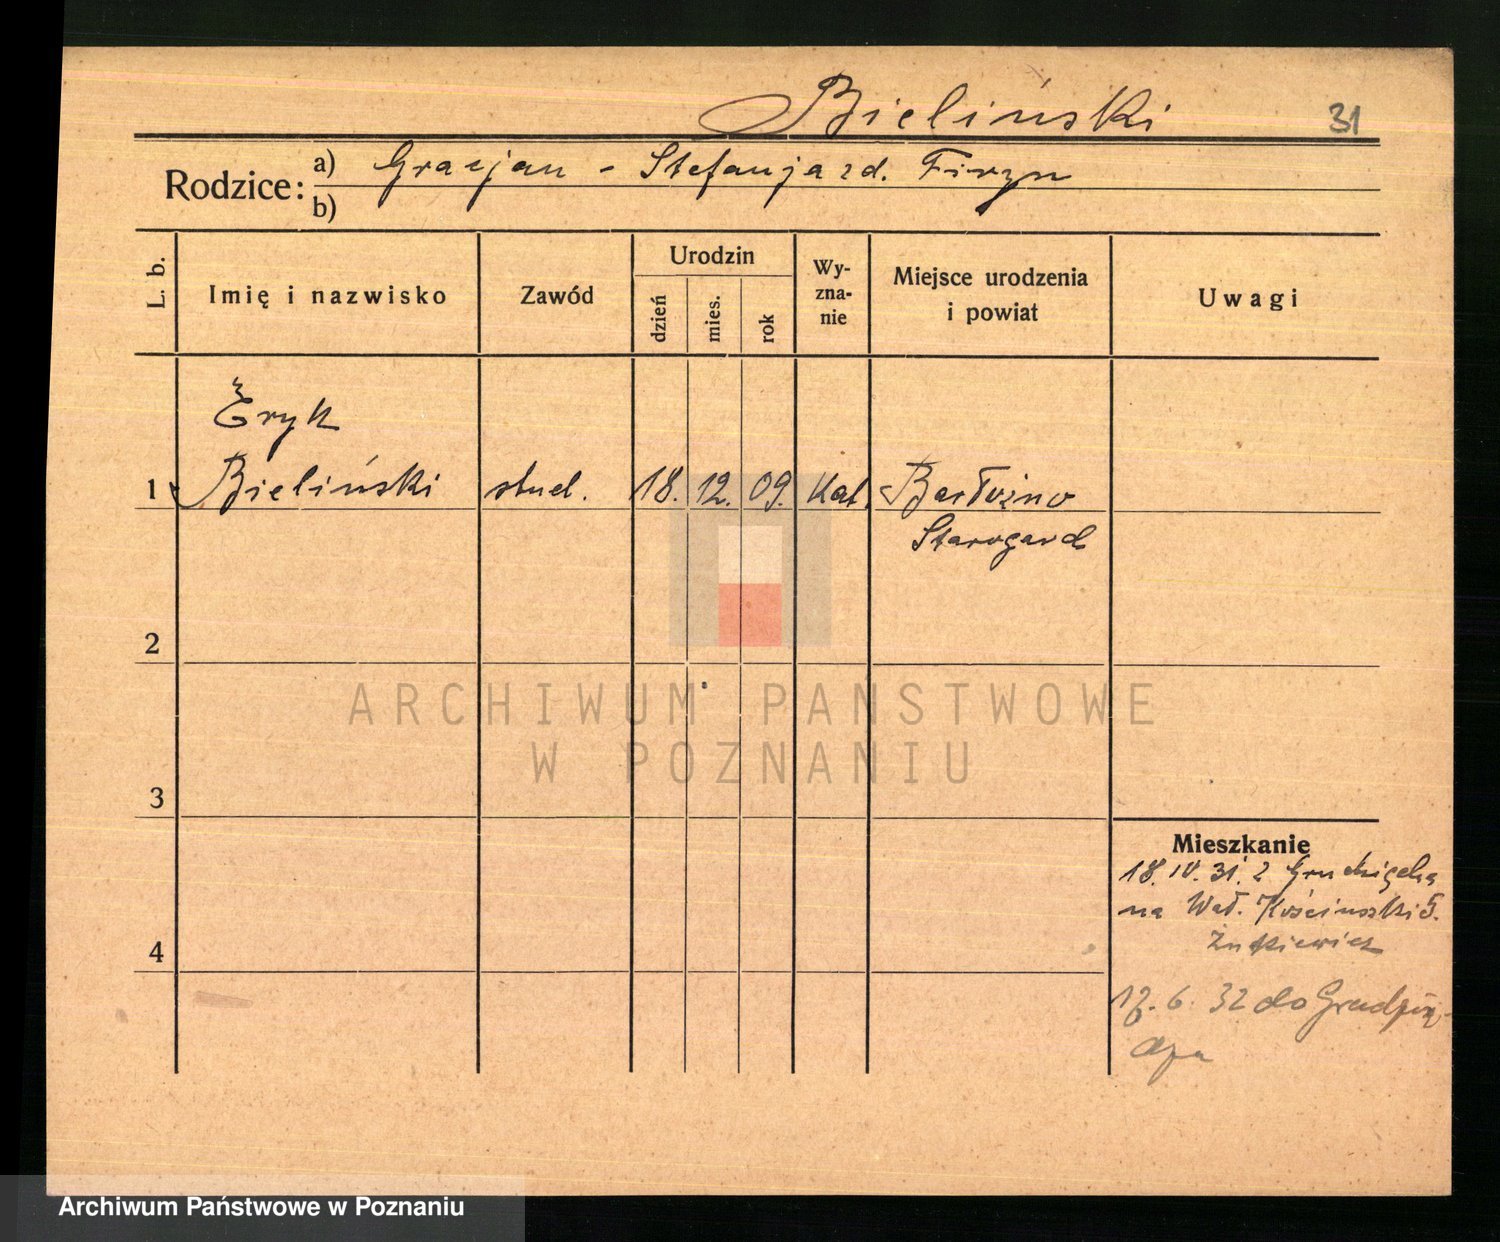 Bieliński 31
Rodzice: a) Gracjan - Stefanja zd. Firyn
b)
L. b. Imię i nazwisko Zawód Urodzin dzień mies. rok Wy-zna-nie Miejsce urodzenia i powiat Uwagi
Eryk
1 Bieliński stud. 18. 12. 09. Kat. Barłożno
Starogard
2
ARCHIWUM PAŃSTWOWE
W POZNANIU
3
Mieszkanie
18. IV. 31. z Grudziądza
na Wał. Kościuszki 5.
4
17. 6. 32 do Grudzią-
dza
Archiwum Państwowe w Poznaniu